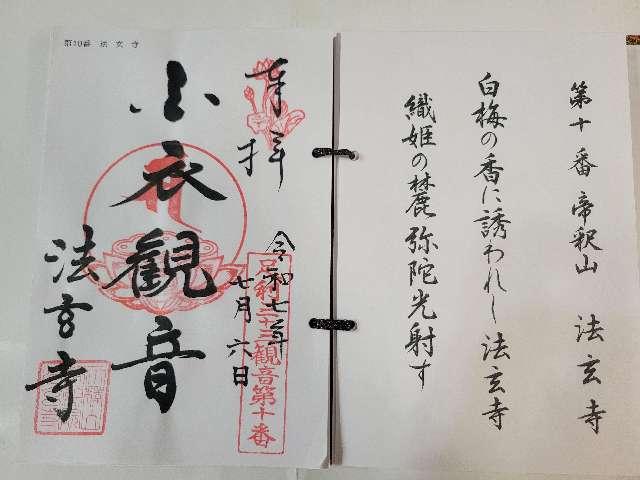 第十番 帝釈山 法玄寺
白梅の香に誘われし法玄寺
織姫の麓 弥陀光射す
第10番 法玄寺
奉拝
令和七年
七月六日
足利三十三観音第十番
小衣観音
法玄寺